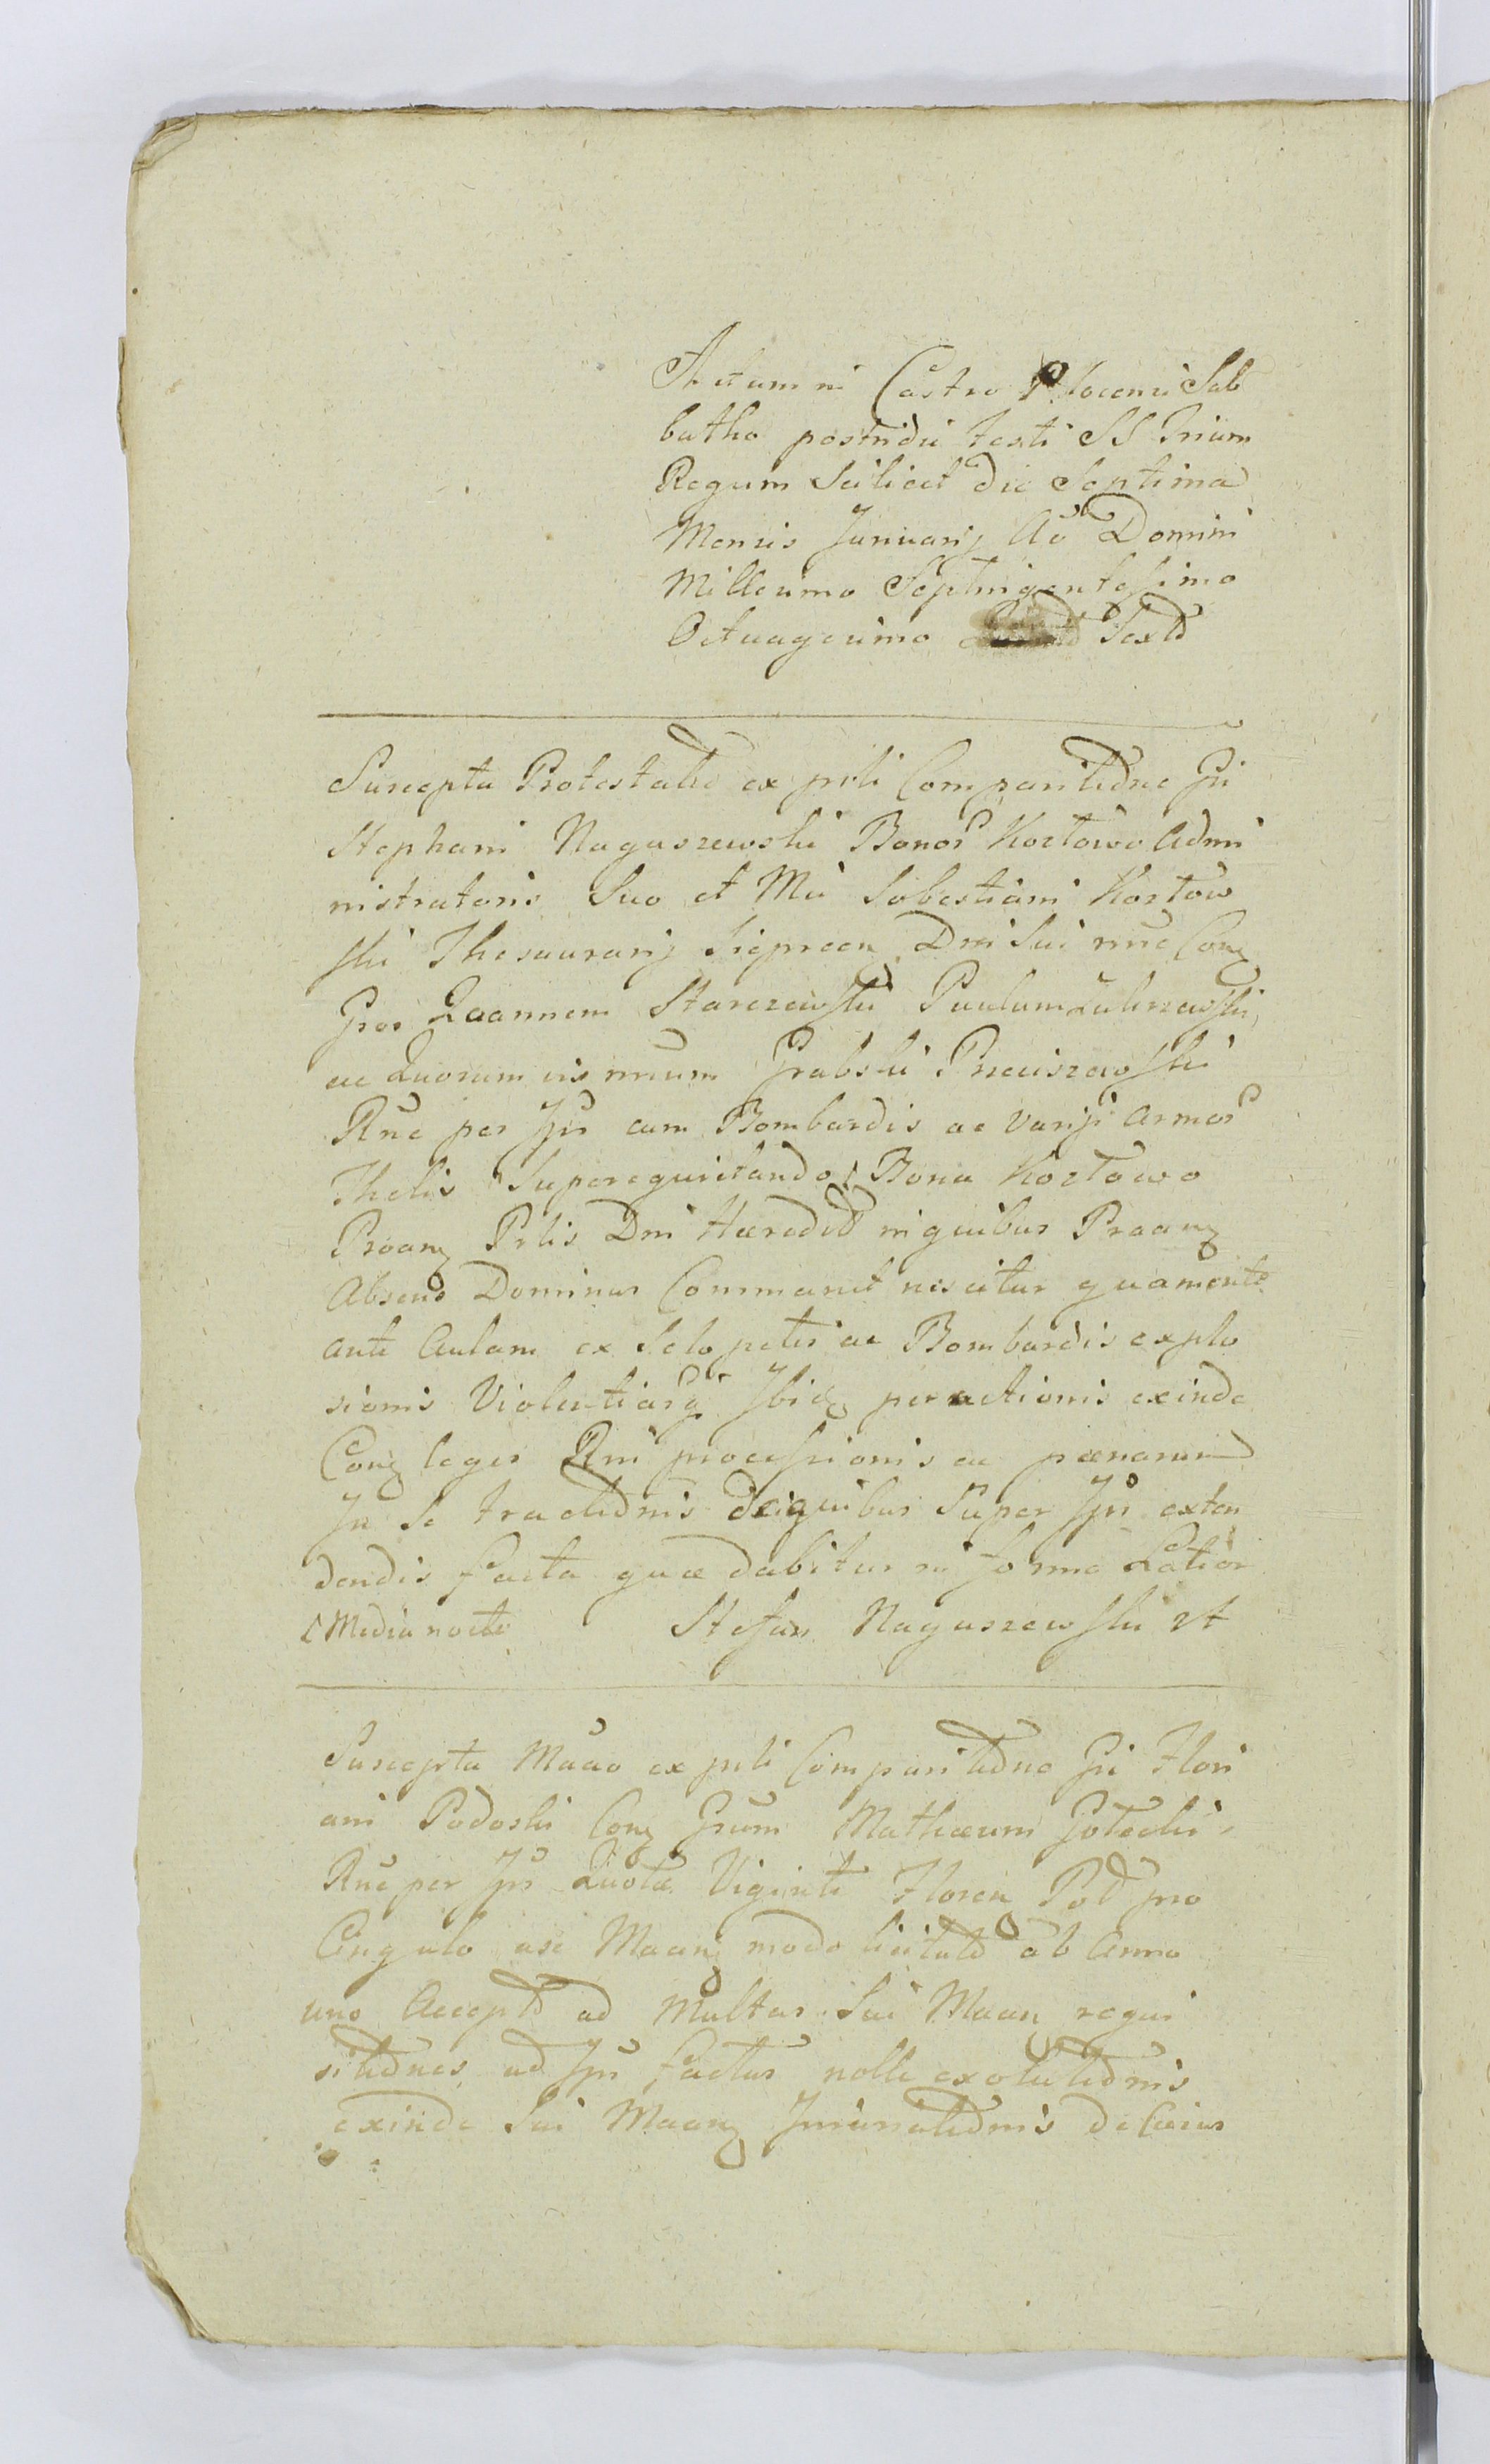 Actum in Castro Plocensi Sab
batho postridie festi SS Trium
Regum Scilicet die Septima
Mensis Januarij Aō Domini
Millesimo Septingentesimo
Octuagesimo Sexto
Suscepta Protestatio ex prsti Comparitione Gsi
Stephani Naguszewski Bonor Kozłowo Admi
nistratoris Suo et Mci Sebestiani Kozłow
ski Thesaurarij Sieprcen Dni Sui nne Conz
Gsos Joannem Starczewski Paulum
ac Quorum vis nnum Grabski Prziciszewski
Rne per Ips cum Bombardis ac varijs Armor
Thelis Superequitando / Bona Kozłowo
Proanz Prlis Dni Hæredit in quibus Praanz
Absens Dominus Commanet nescitur qua mente
ante Aulam ex Sclopetis ac Bombardis explo
sionis Violentiarq Ibidz peractionis exinde
Conz leges Rni processionis ac pænarum
In Se tractionis Deiquibus Super Ips exten
dendis facta quæ dabitur in forma Latior
/ Media nocte Stefan Naguszewski rt
Suscepta Maao ex prsti Comparitione Gsi Flori
ani Podoski Conz Gsum Mathæum Gotecki
Rne per Ips Quotæ Viginti Floren Pol pro
Cingulo a se Maanz modo licitato ab Anno
uno Accepto ad Multas Sui Maan requi
sitiones ad Ips factas nolle exolutionis
exinde Sui Maanz Iniuriationis de Cuius